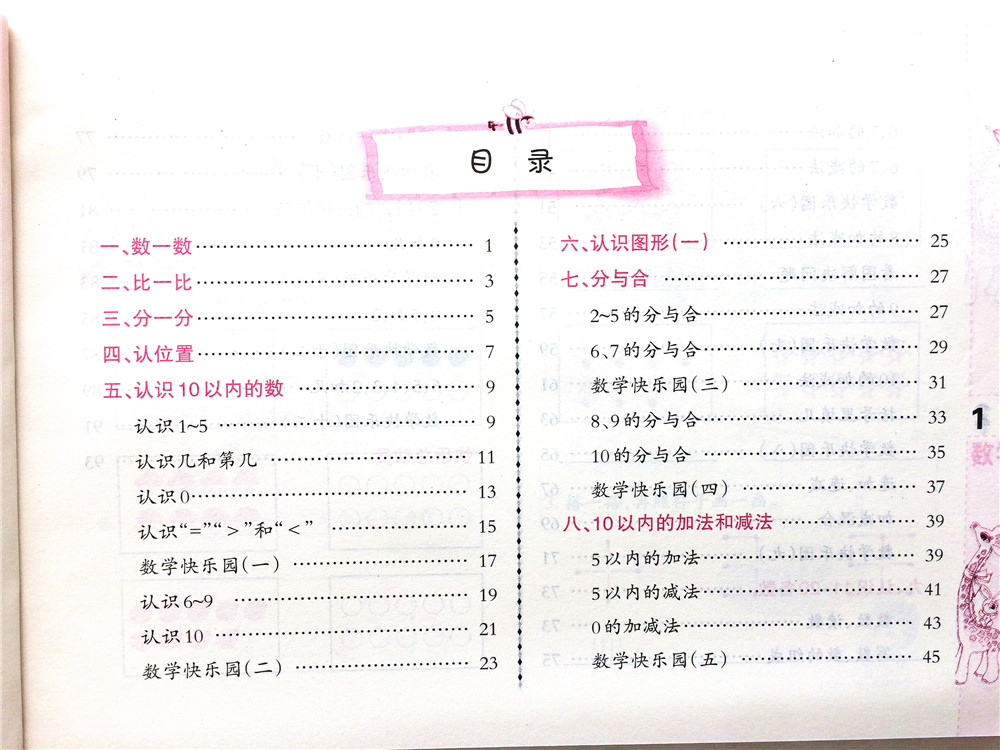 目 录
一、数一数………………………………… 1
二、比一比………………………………… 3
三、分一分………………………………… 5
四、认位置………………………………… 7
五、认识10以内的数 …………………… 9
认识1~5 ……………………………… 9
认识几和第几 ………………………… 11
认识0………………………………… 13
认识“=”“>”和“<” ………………… 15
数学快乐园(一) ……………………… 17
认识6~9 ……………………………… 19
认识10 ……………………………… 21
数学快乐园(二) ……………………… 23
六、认识图形(一) ……………………… 25
七、分与合 ……………………………… 27
2~5的分与合………………………… 27
6、7的分与合………………………… 29
数学快乐园(三) ……………………… 31
8、9的分与合………………………… 33
10的分与合 ………………………… 35
数学快乐园(四) ……………………… 37
八、10以内的加法和减法 ……………… 39
5以内的加法………………………… 39
5以内的减法………………………… 41
0的加减法…………………………… 43
数学快乐园(五) ……………………… 45
1